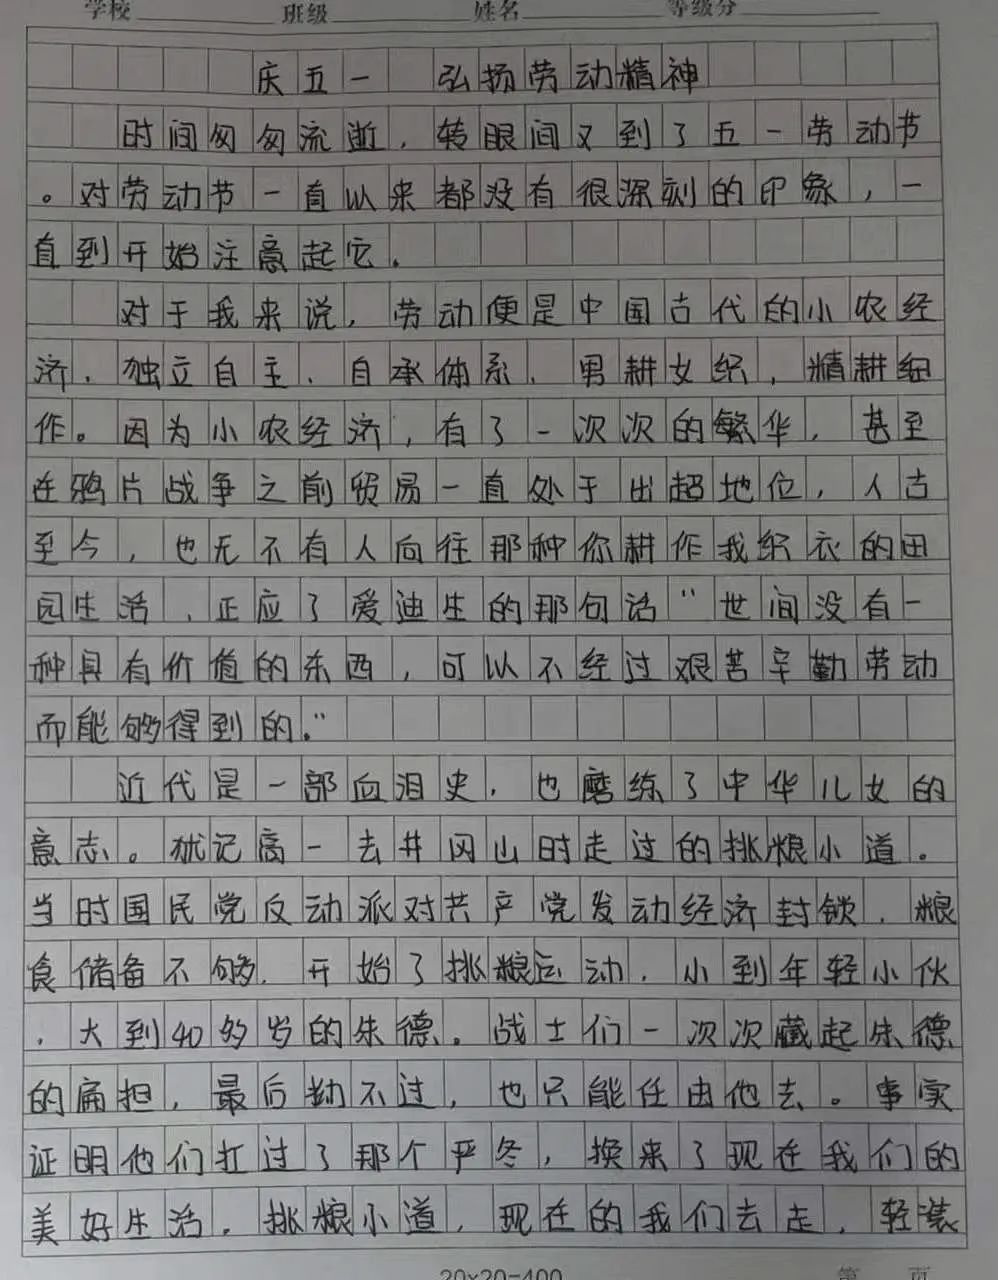 学校 班级 姓名 等级分
庆五一 弘扬劳动精神
时间匆匆流逝，转眼间又到了五一劳动节
。对劳动节一直以来都没有很深刻的印象，一
直到开始注意起它.
对于我来说，劳动便是中国古代的小农经
济，独立自主、自承体系，男耕女织，精耕细
作。因为小农经济，有了一次次的繁华，甚至
在鸦片战争之前贸易一直处于出超地位，人古
至今，也无不有人向往那种你耕作我织衣的田
园生活，正应了爱迪生的那句话“世间没有一
种具有价值的东西，可以不经过艰苦辛勤劳动
而能够得到的.”
近代是一部血泪史，也磨练了中华儿女的
意志。犹记高一去井冈山时走过的挑粮小道。
当时国民党反动派对共产党发动经济封锁，粮
食储备不够，开始了挑粮运动，小到年轻小伙
，大到40多岁的朱德。战士们一次次藏起朱德
的扁担，最后劝不过，也只能任由他去。事实
证明他们扛过了那个严冬，换来了现在我们的
美好生活。挑粮小道，现在的我们去走，轻装
20×20=400 第 页